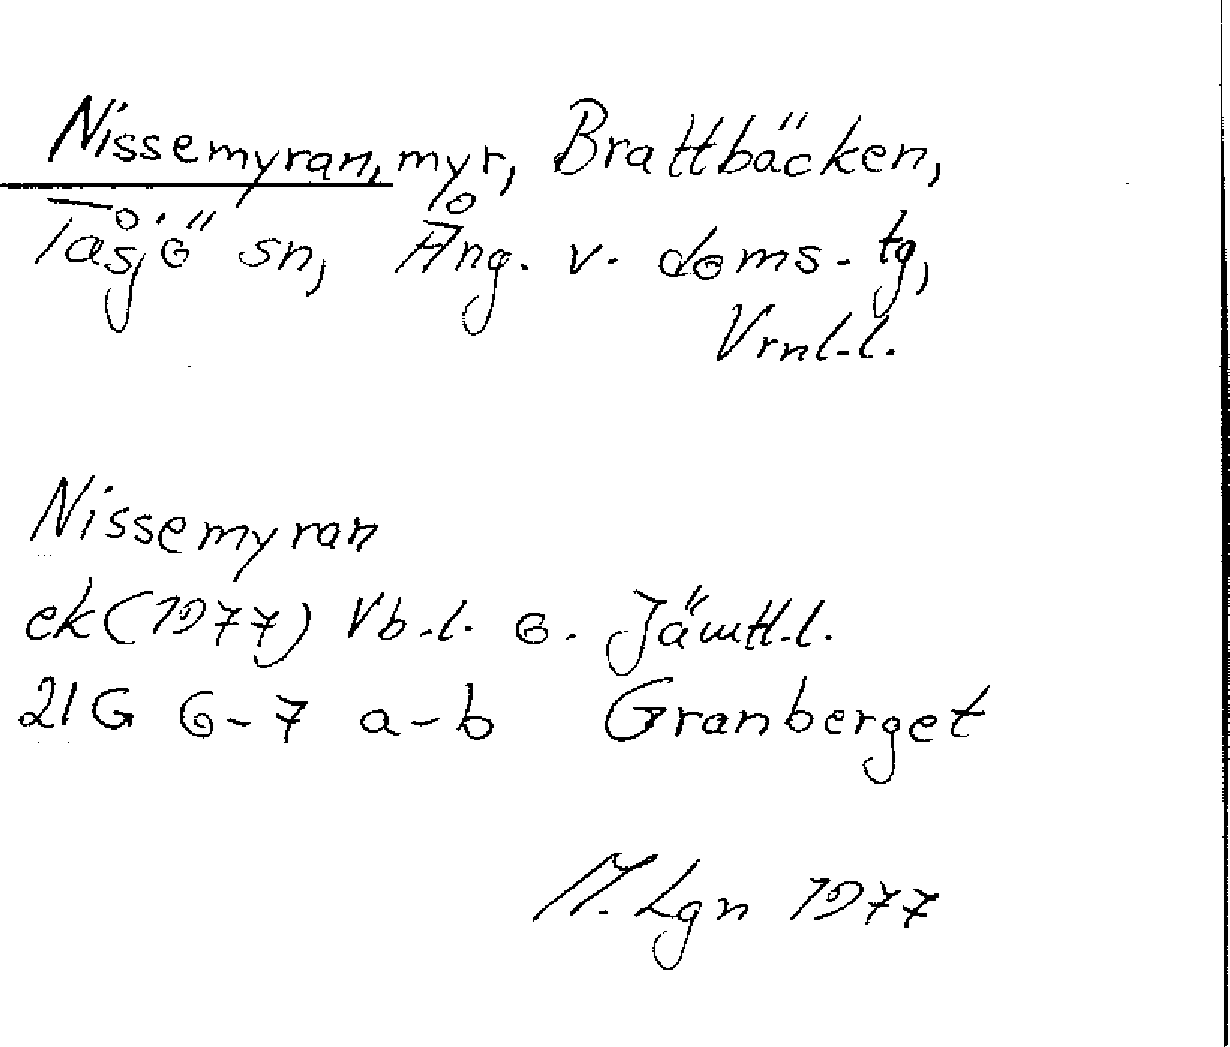 Nissemyran, myr, Brattbäcken,
Tåsjö sn, Ång. v. doms.-tg,
Vrnl.l.
Nissemyran
ek (1977) Vb.l. o. Jämtl.l.
21G 6-7 a-b Granberget
M. Lgn 1977